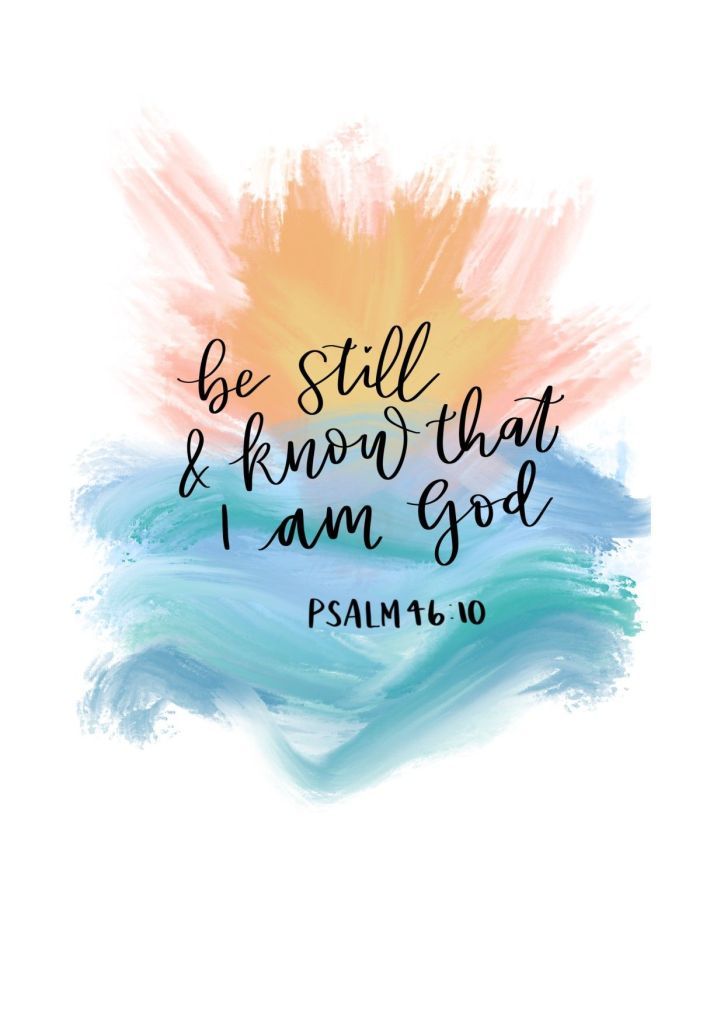 be still
& know that
I am God
PSALM 46:10